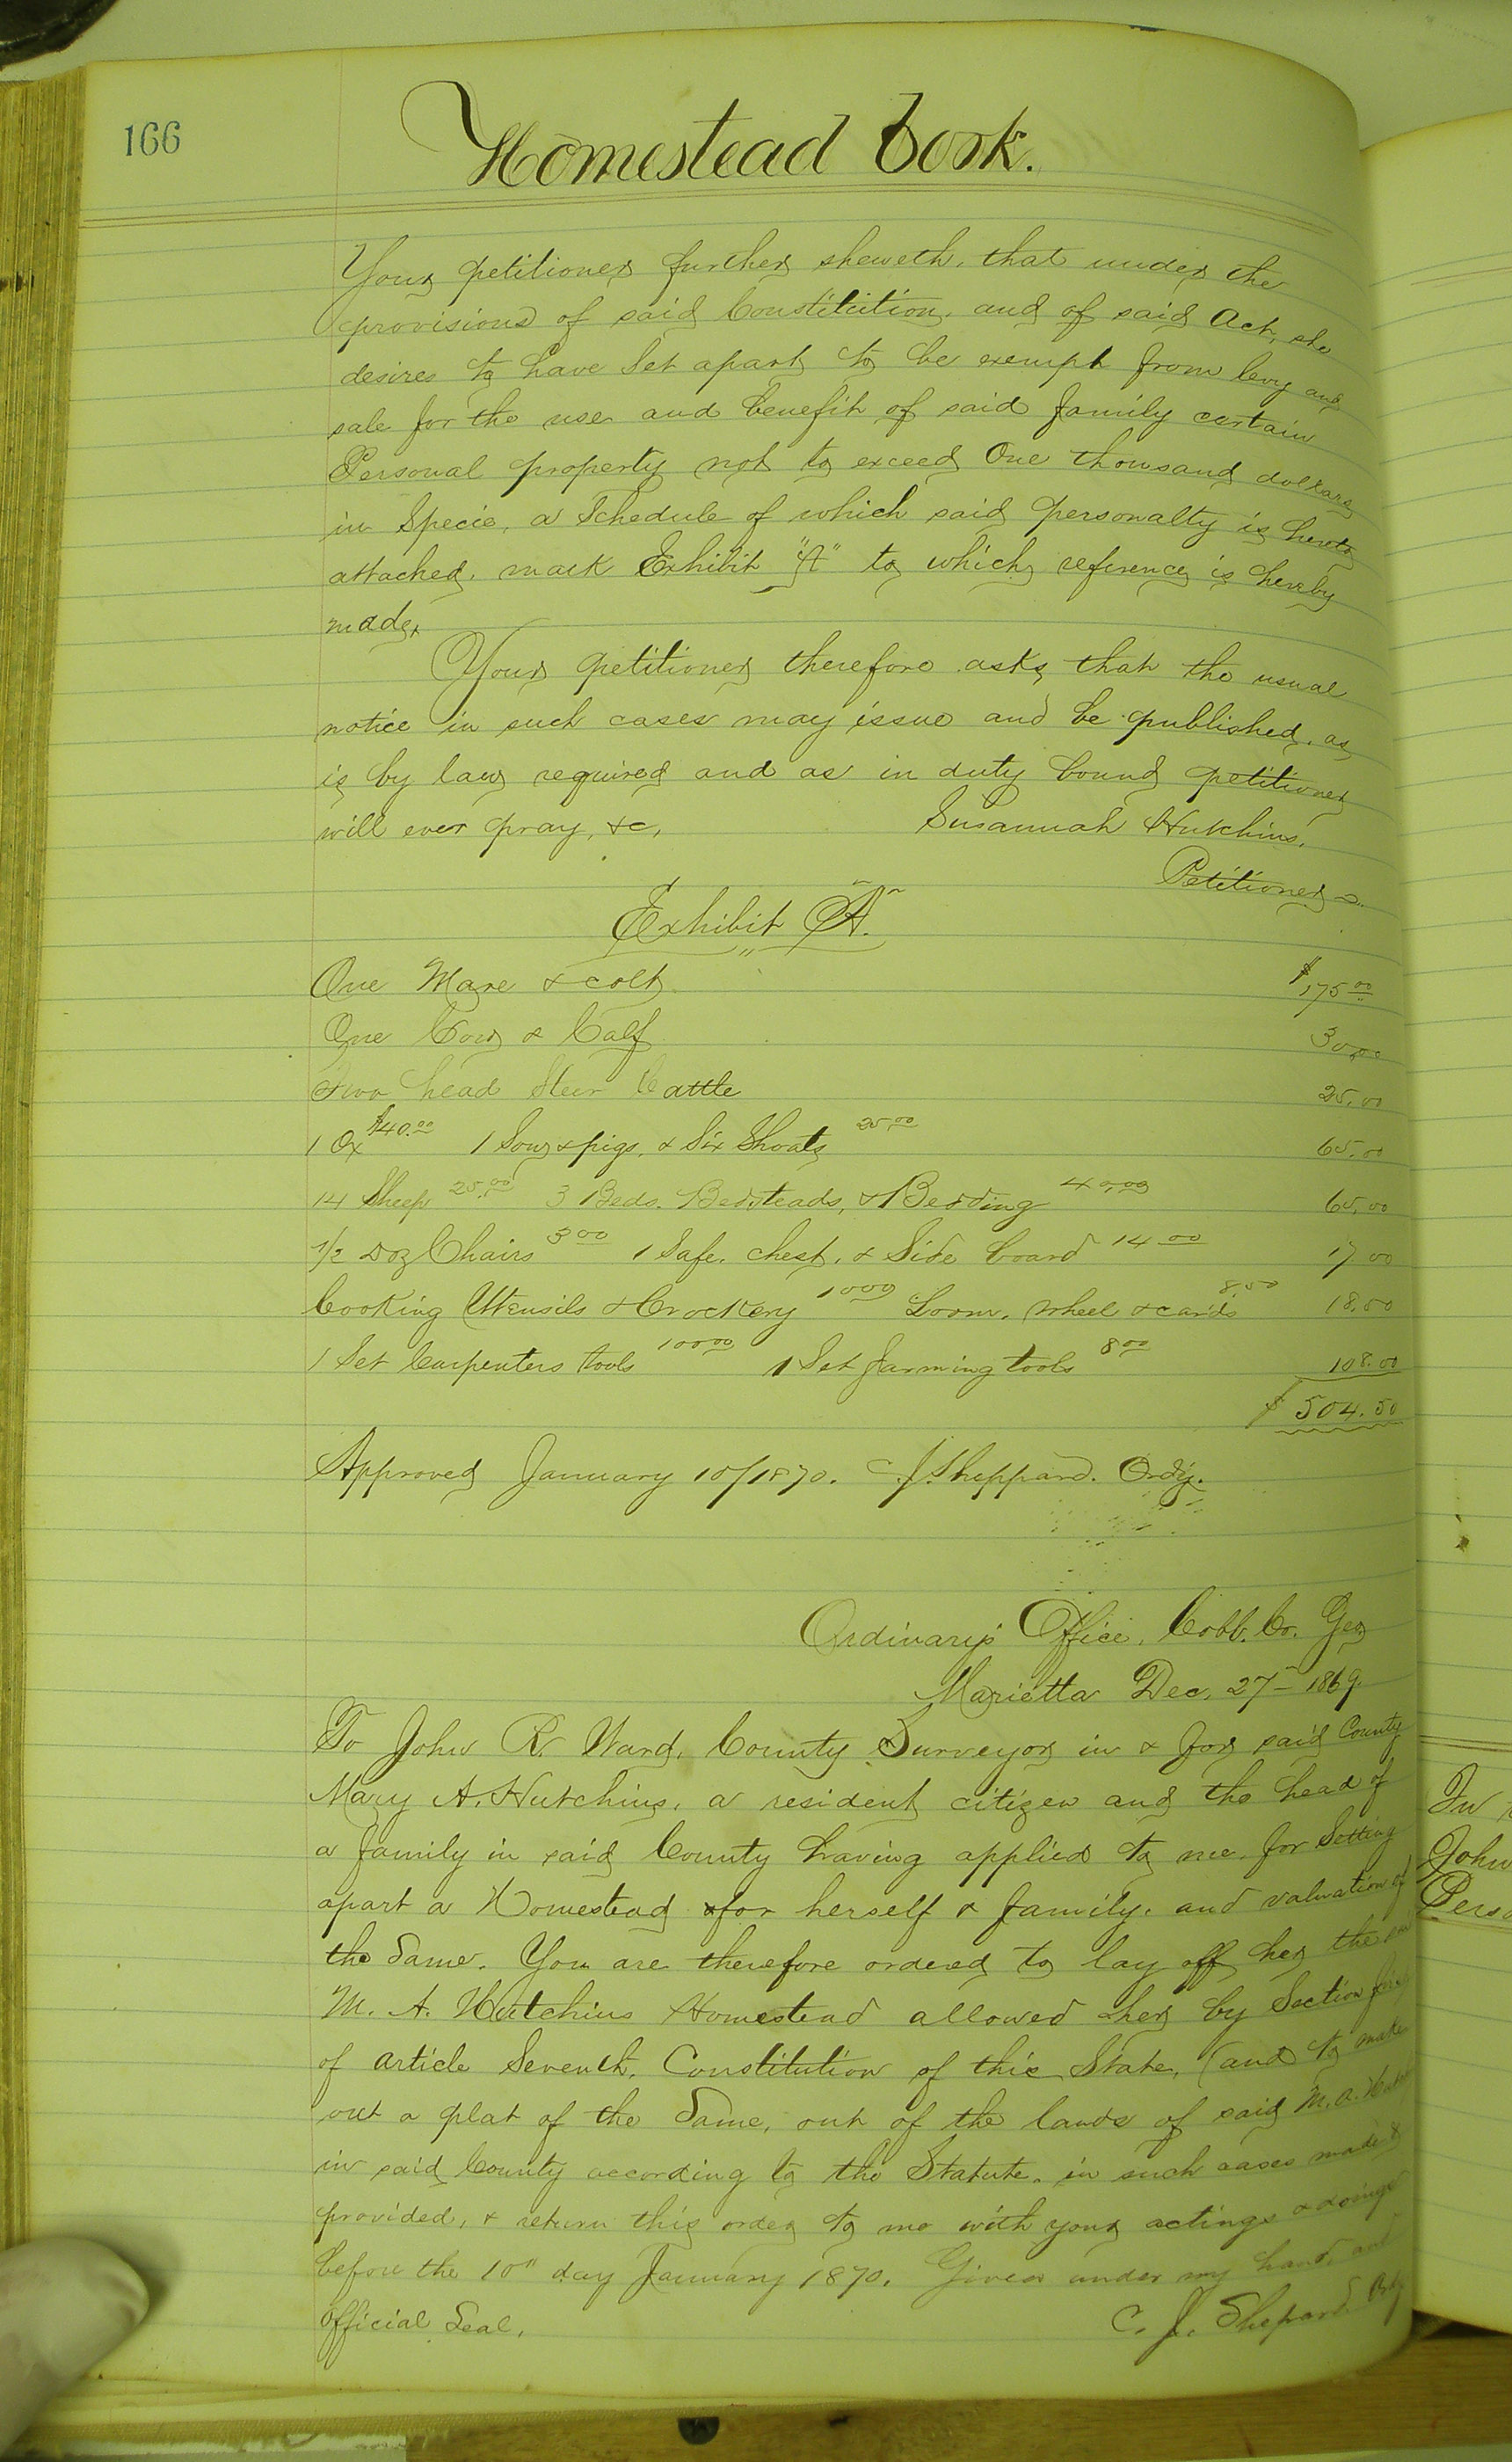 166
Homestead book.
Your petitioner further sheweth, that under the
provisions of said Constitution, and of said Act, she
desires to have Set apart to be exempt from levy and
sale for the use and benefit of said family certain
Personal property not to exceed One thousand dollars
in Specie, a Schedule of which said personalty is hereto
attached, mark Exhibit "A" to which reference is hereby
made.
Your petitioner therefore asks that the usual
notice in such cases may issue and be published, as
is by law required and as in duty bound petitioner
will ever pray, &c, Susannah Hutchins,
Petitioner
Exhibit "A".
One Mare & colt $175.00
One Cow & Calf 30.00
Two head Steer Cattle 25.00
1 Ox $40.00 1 Sow & pigs, & Six Shoats 25.00 65.00
14 Sheep 25.00 3 Beds, Bedsteads, & Bedding 40.00 65.00
1/2 Doz Chairs 3.00 1 Safe, chest, & Side board 14.00 17.00
Cooking Utensils & Crockery 10.00 Loom, wheel & cards 8.50 18.50
1 Set Carpenters tools 100.00 1 Set farming tools 8.00 108.00
$504.50
Approved January 10/1870. C. J. Sheppard. Ordy.
Ordinary's Office, Cobb. Co. Geo
Marietta Dec, 27 1869.
To John R. Ward, County Surveyor in & for said County
Mary A. Hutchins, a resident citizen and the head of
a family in said County having applied to me, for Setting
apart a Homestead for herself & family, and valuation of
the Same. You are therefore ordered to lay off her the
M. A. Hutchins Homestead allowed her by Section
of article Seventh, Constitution of this State, (and to make
out a plat of the Same, out of the lands of said M. A.
in said County according to the Statute, in such cases made &
provided, & return this order to me with your actings & doings
before the 10" day January 1870. Given under my hand and
official Seal. C. J. Shepard Ordy
In
John
Perso